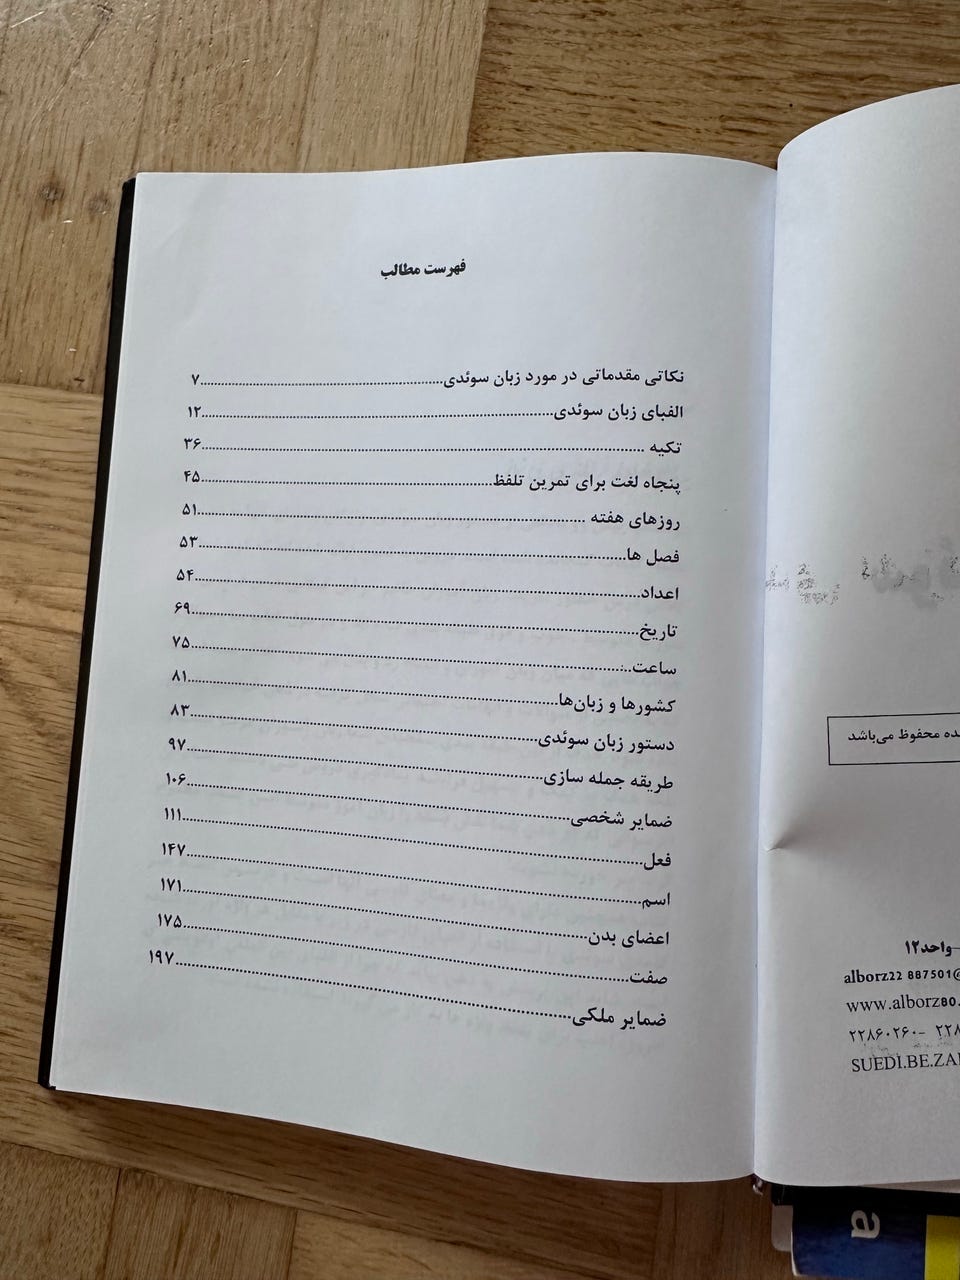 ده محفوظ می‌باشد
–واحد۱۲
alborz22 887501@
www.alborz80.
۲۲۸۶۰۲۶۰- ۲۲۸
SUEDI.BE.ZA
فهرست مطالب
نکاتی مقدماتی در مورد زبان سوئدی..........۷
الفبای زبان سوئدی..........۱۲
تکیه ..........۳۶
پنجاه لغت برای تمرین تلفظ..........۴۵
روزهای هفته ..........۵۱
فصل ها..........۵۳
اعداد..........۵۴
تاریخ..........۶۹
ساعت..........۷۵
کشورها و زبان‌ها..........۸۱
دستور زبان سوئدی..........۸۳
طریقه جمله سازی..........۹۷
ضمایر شخصی..........۱۰۶
فعل..........۱۱۱
اسم..........۱۴۷
اعضای بدن..........۱۷۱
صفت..........۱۷۵
ضمایر ملکی..........۱۹۷
a